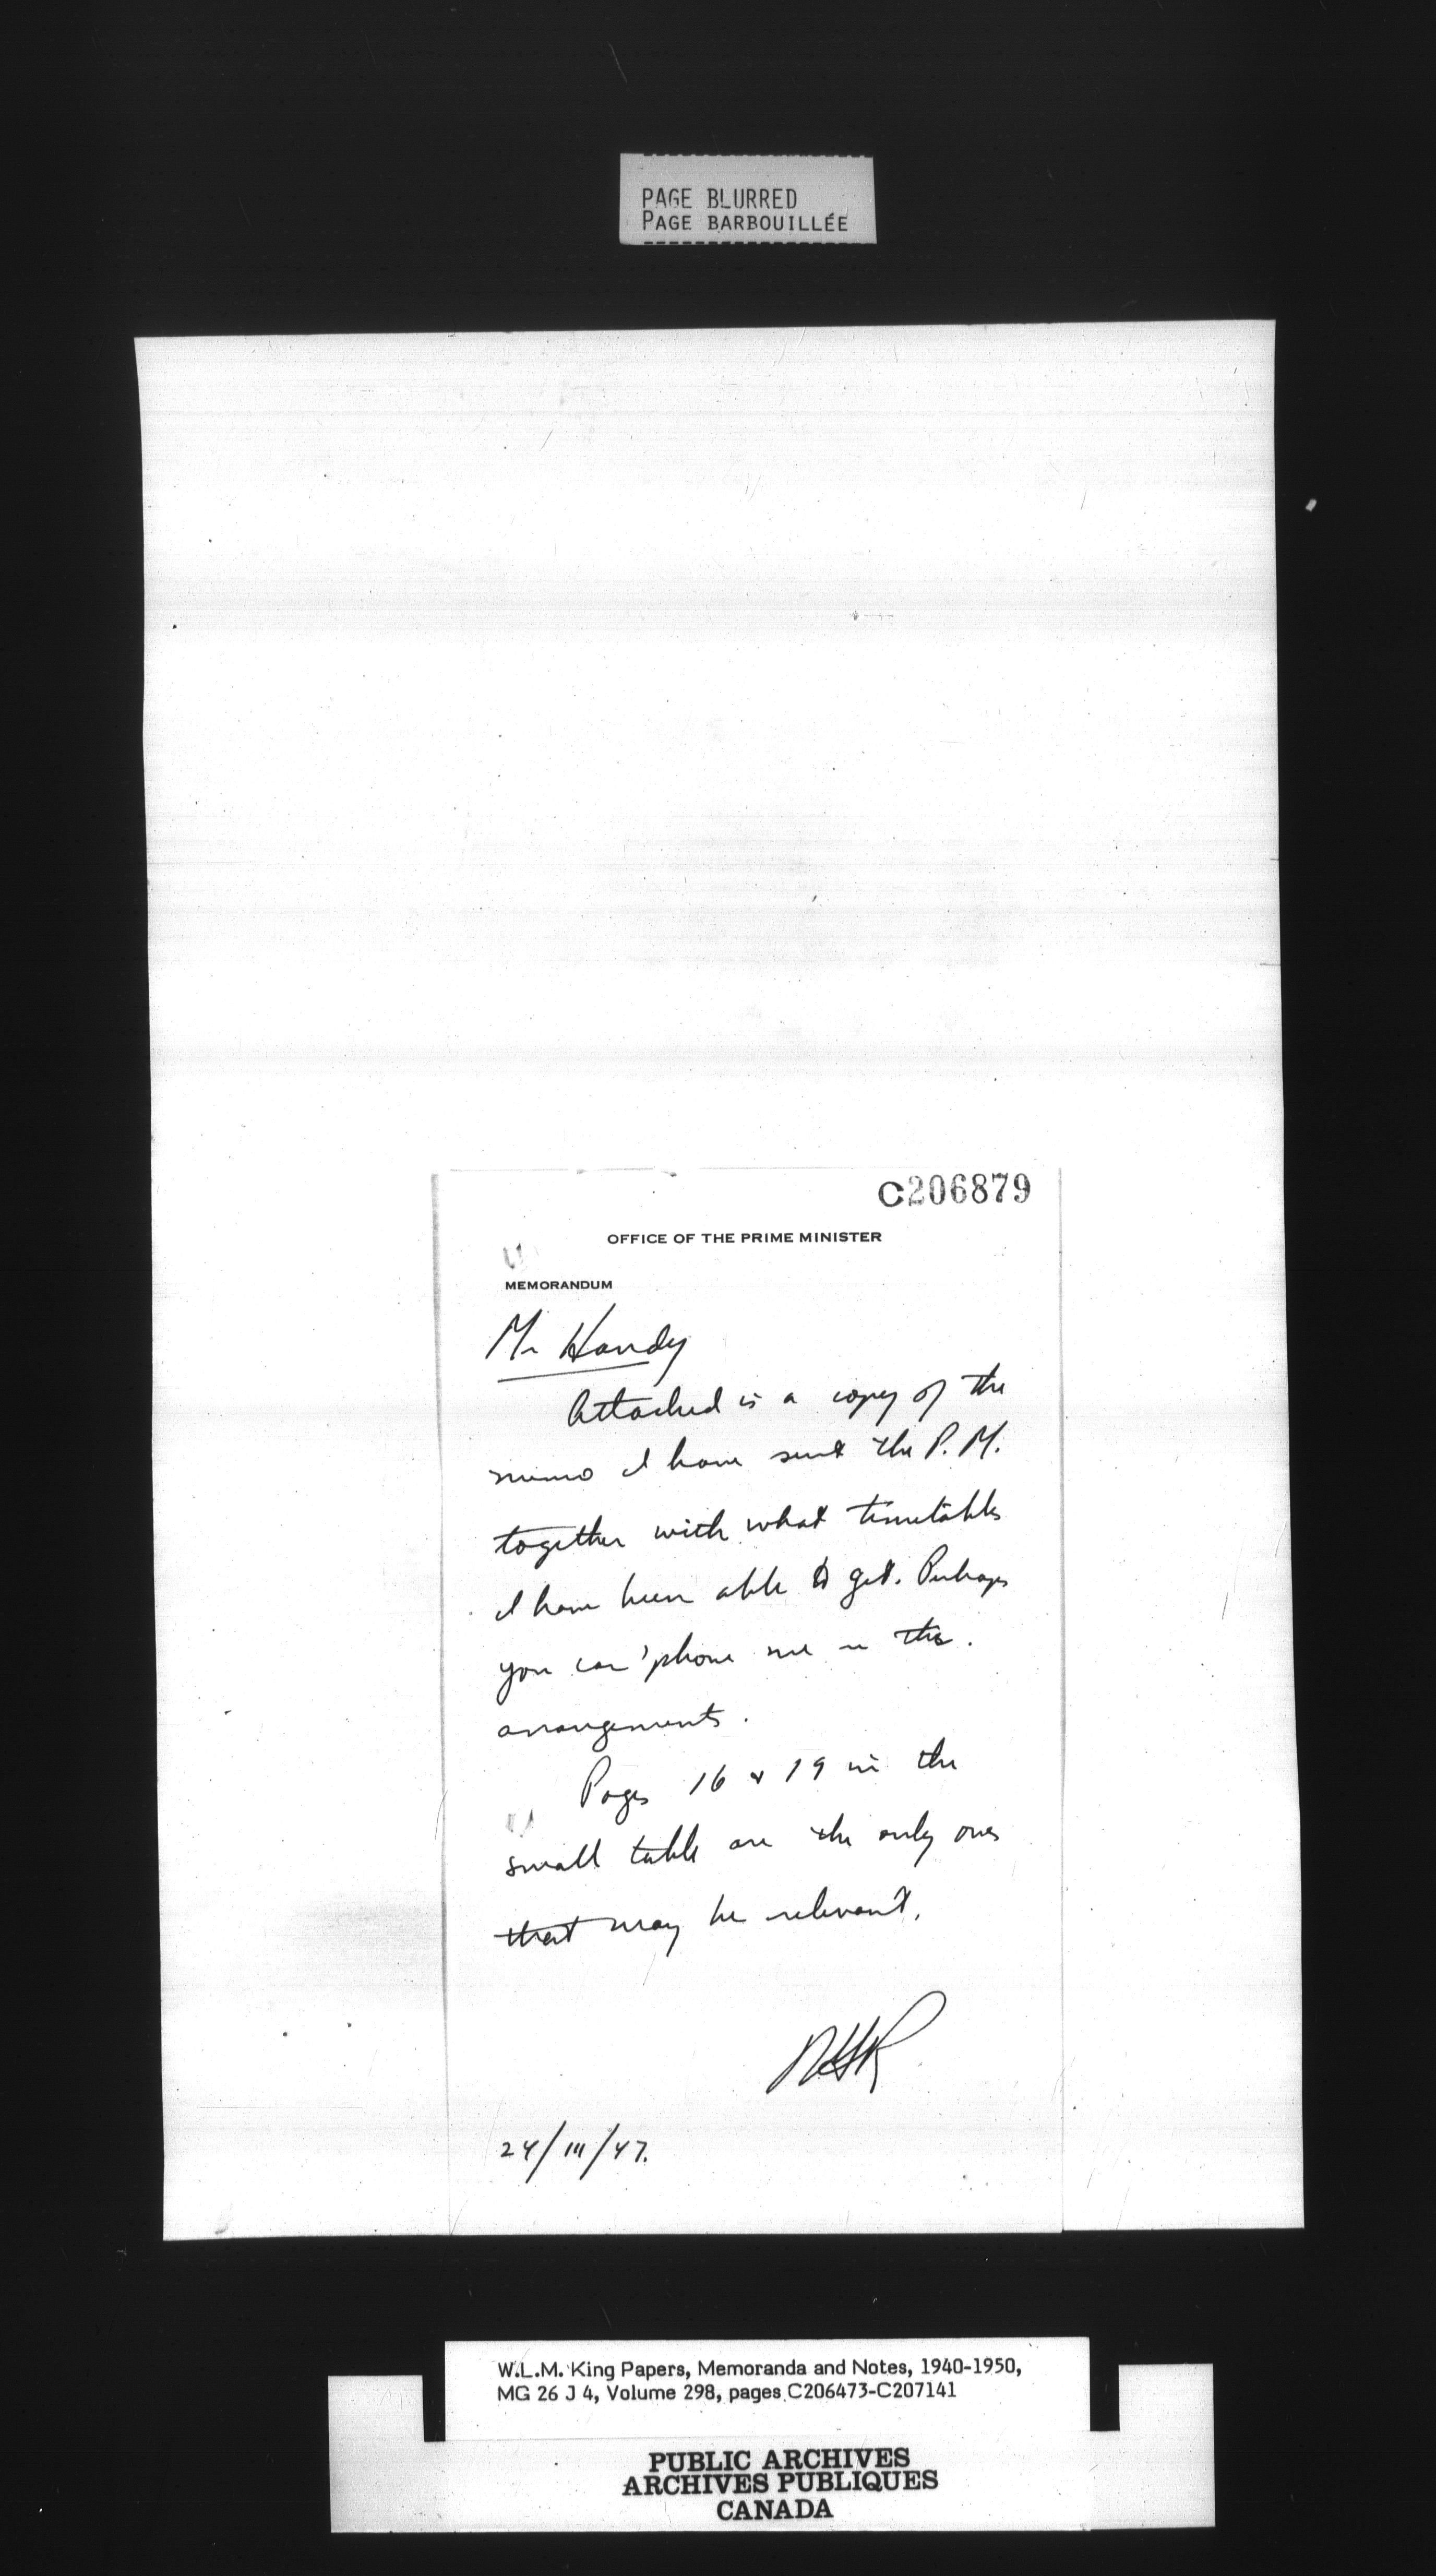 PAGE BLURRED
PAGE BARBOUILLÉE
C206879
OFFICE OF THE PRIME MINISTER
MEMORANDUM
Mr Handy
Attached is a copy of the
memo I have sent the P.M.
together with what timetables
I have been able to get. Perhaps
you can 'phone me re the
arrangements.
Pages 16 & 19 in the
small table are the only ones
that may be relevant.
24/III/47.
W.L.M. King Papers, Memoranda and Notes, 1940-1950,
MG 26 J 4, Volume 298, pages C206473-C207141
PUBLIC ARCHIVES
ARCHIVES PUBLIQUES
CANADA